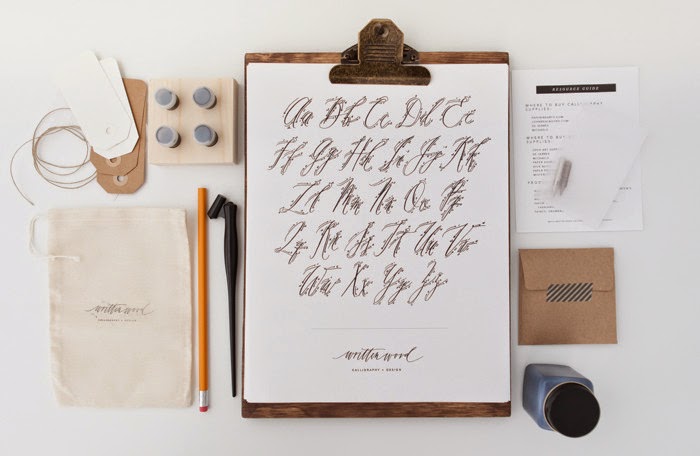 Aa Bb Cc Dd Ee
Ff Gg Hh Ii Jj Kk
Ll Mm Nn Oo Pp
Qq Rr Ss Tt Uu Vv
Ww Xx Yy Zz
written word
CALLIGRAPHY + DESIGN
written word
CALLIGRAPHY + DESIGN
RESOURCE GUIDE
WHERE TO BUY CALLIGRAPHY
SUPPLIES:
WHERE TO BUY
SUPPLIES: